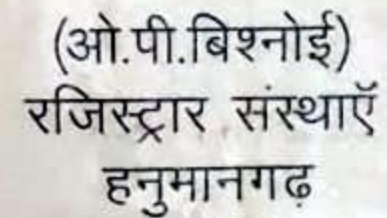 (ओ.पी.बिश्नोई)
रजिस्ट्रार संस्थाएँ
हनुमानगढ़